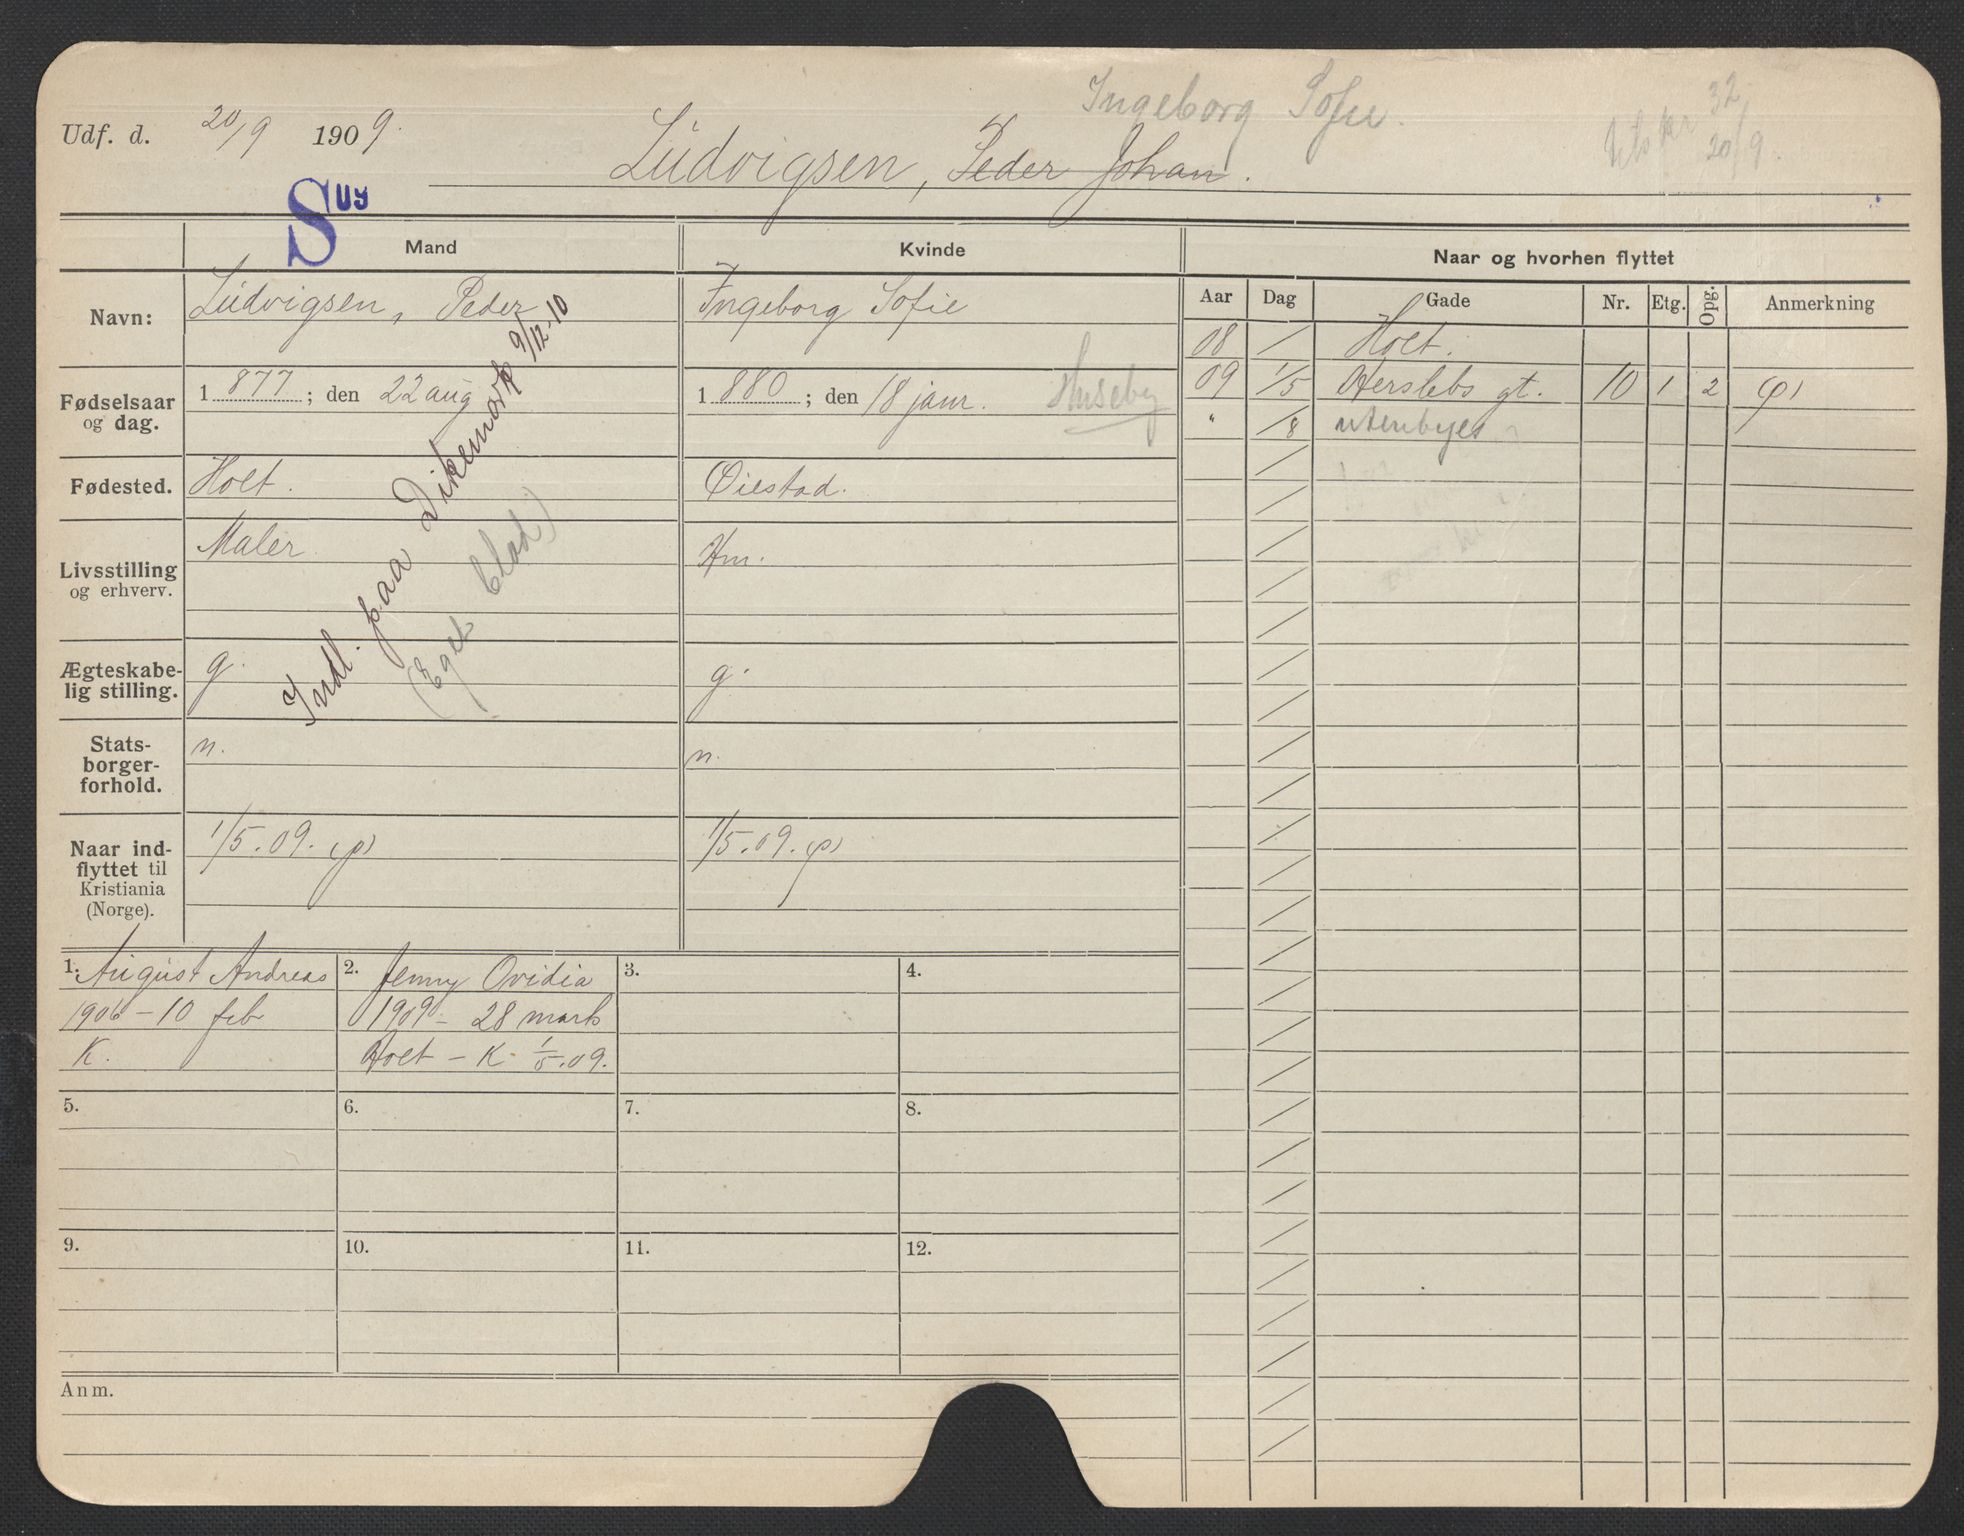 Ingeborg Sofie.
Udf. d. 20/9 1909.
Ludvigsen, Peder Johan.
32
20/9.
S U9
Mand
Kvinde
Naar og hvorhen flyttet
Navn:
Ludvigsen, Peder
Ingeborg Sofie
Aar Dag Gade Nr. Etg. Opg. Anmerkning
08 / Holt.
09 1/5 Herslebs gt. 10 1 2 (p)
" /8 utenbyes
Fødselsaar og dag.
1877; den 22 aug
1880; den 18 janr. Huseby
Fødested.
Holt.
Øiestad.
Livsstilling og erhverv.
Maler
Hm.
Indl. paa Dikemark 9/12-10
(Eget blad)
Ægteskabelig stilling.
g.
g.
Statsborgerforhold.
n.
n.
Naar indflyttet til Kristiania (Norge).
1/5.09. (p)
1/5.09. (p)
1. August Andreas
1906 - 10 feb
K.
2. Jenny Ovidia
1909 - 28 marts
Holt - K. 1/5.09.
3.
4.
5.
6.
7.
8.
9.
10.
11.
12.
Anm.